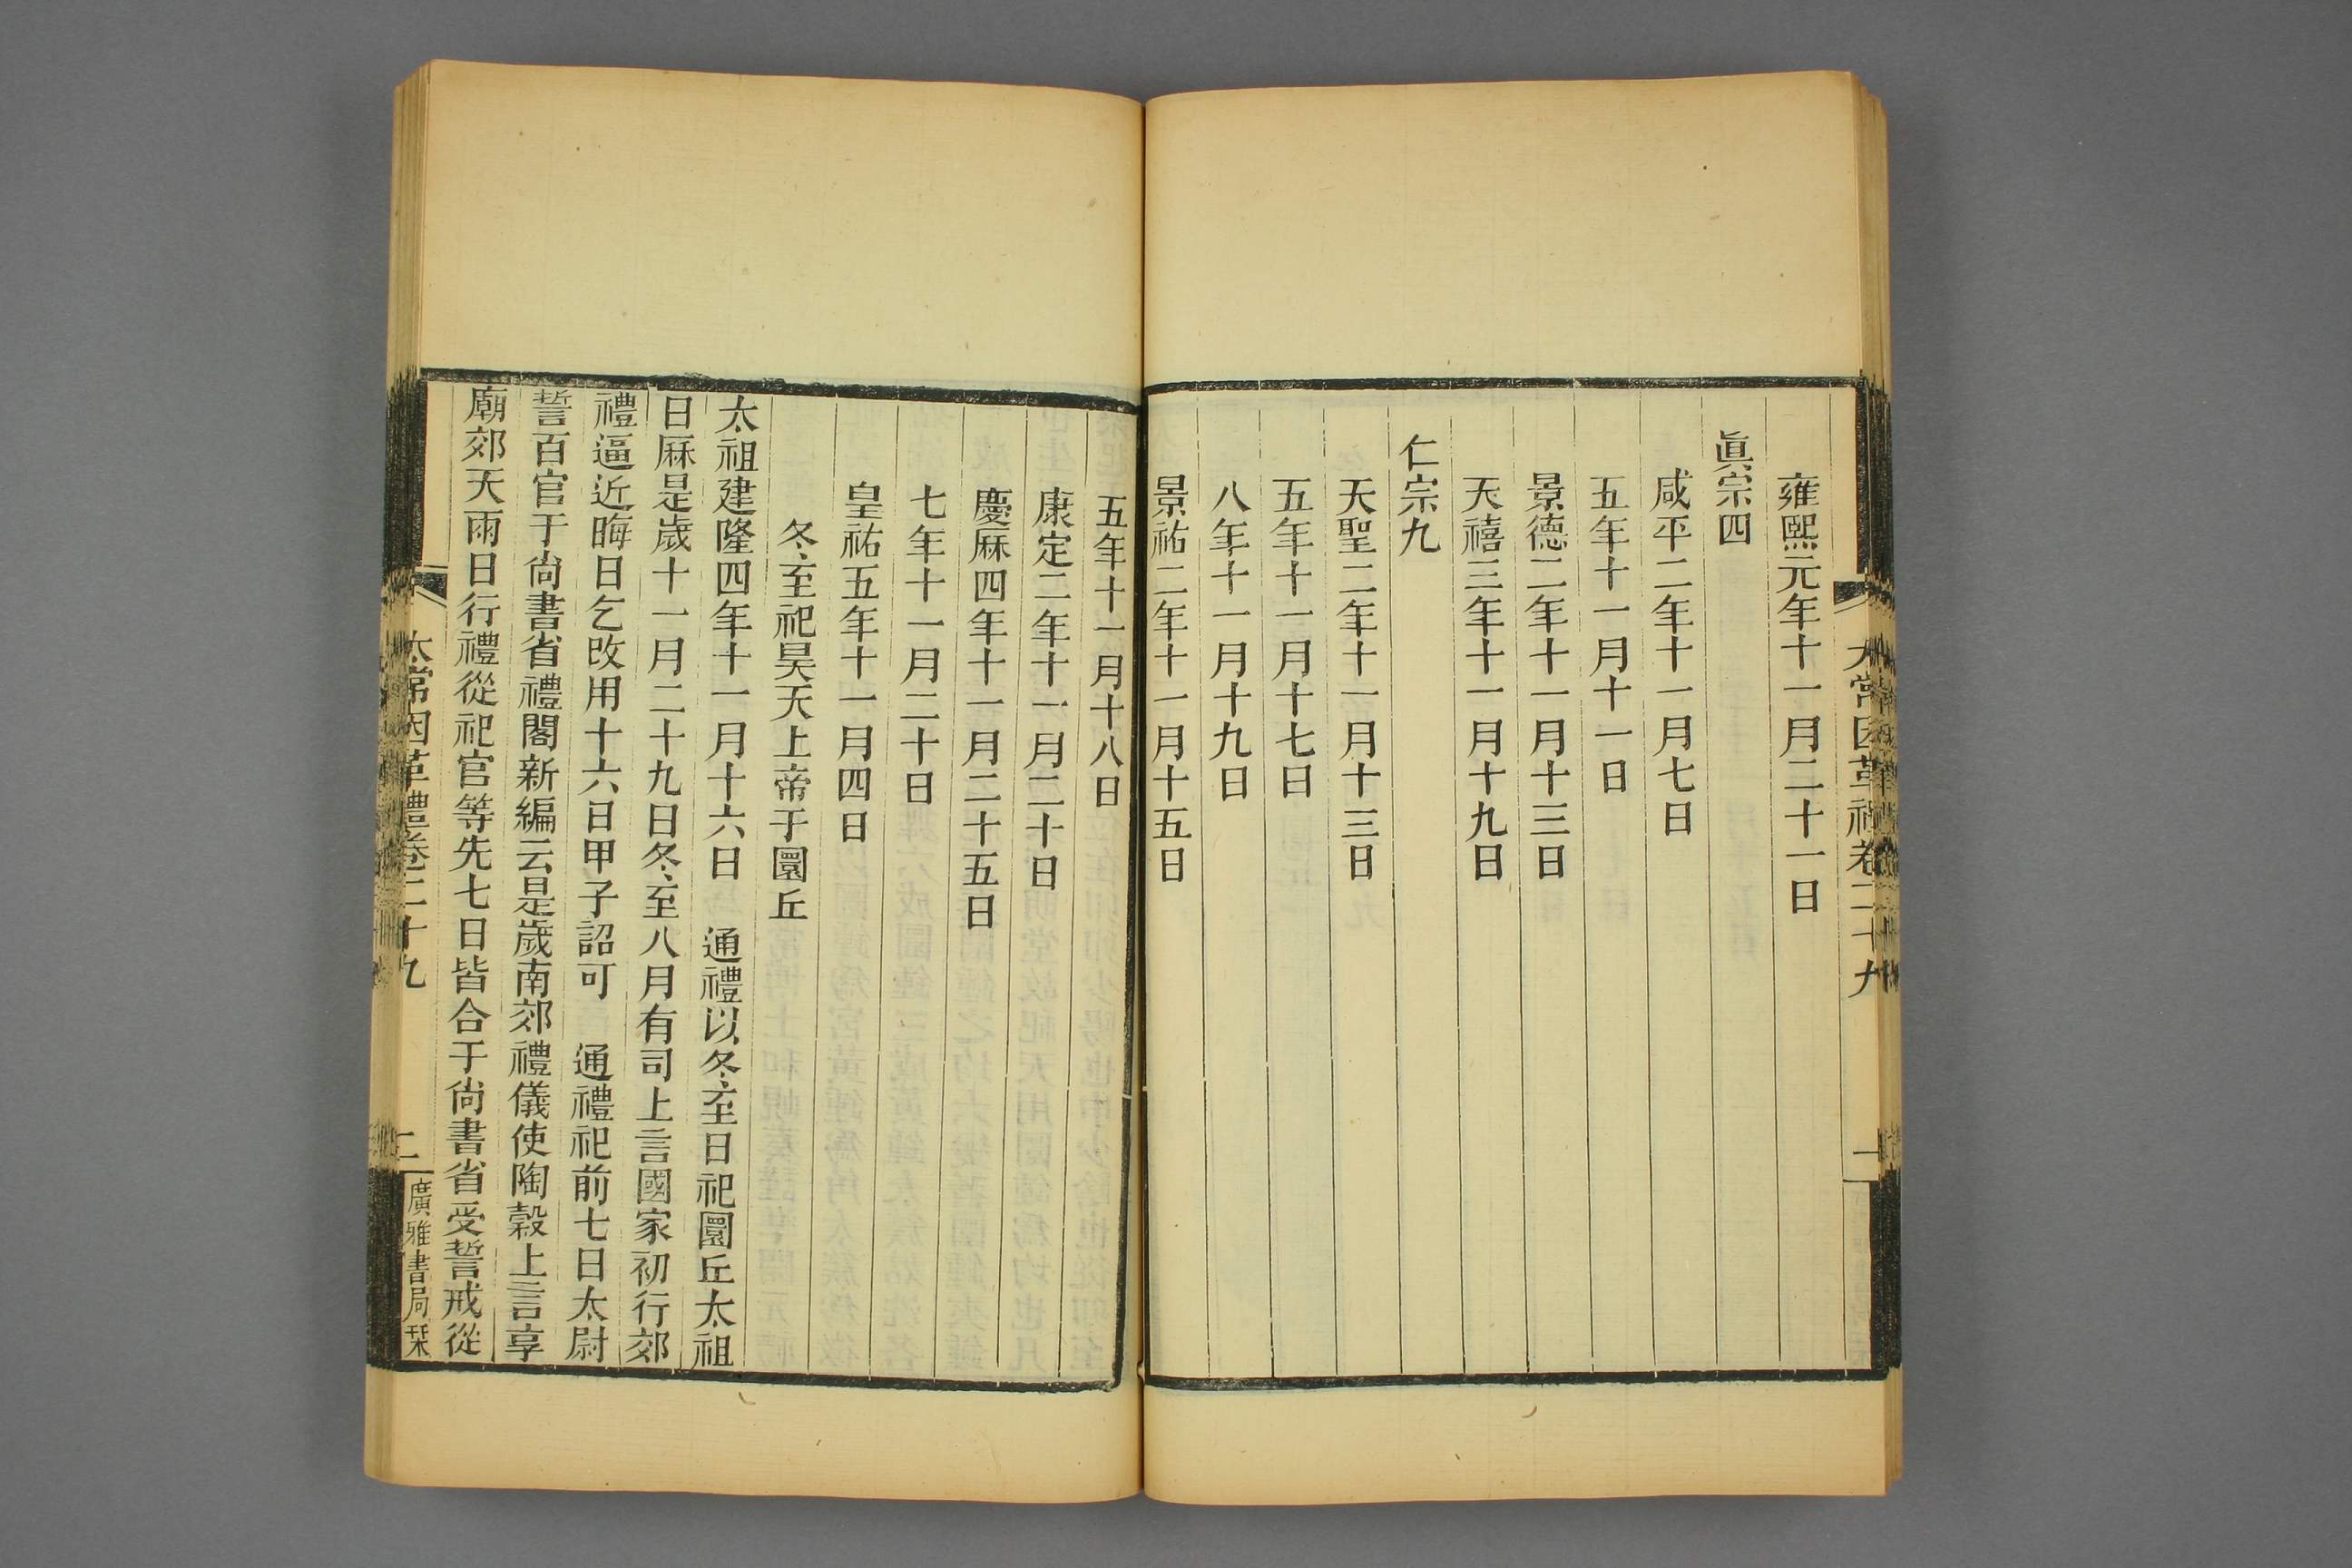 雍熙元年十一月二十一日
眞宗四
咸平二年十一月七日
五年十一月十一日
景德二年十一月十三日
天禧三年十一月十九日
仁宗九
天聖二年十一月十三日
五年十一月十七日
八年十一月十九日
景祐二年十一月十五日
五年十一月十八日
康定二年十一月二十日
慶厤四年十一月二十五日
七年十一月二十日
皇祐五年十一月四日
冬至祀昊天上帝于圜丘
太祖建隆四年十一月十六日　通禮以冬至日祀圜丘太祖
日厤是歲十一月二十九日冬至八月有司上言國家初行郊
禮逼近晦日乞改用十六日甲子詔可　通禮祀前七日太尉
誓百官于尚書省禮閣新編云是歲南郊禮儀使陶穀上言享
廟郊天兩日行禮從祀官等先七日皆合于尚書省受誓戒從
太常因革禮卷二十九
二
廣雅書局栞